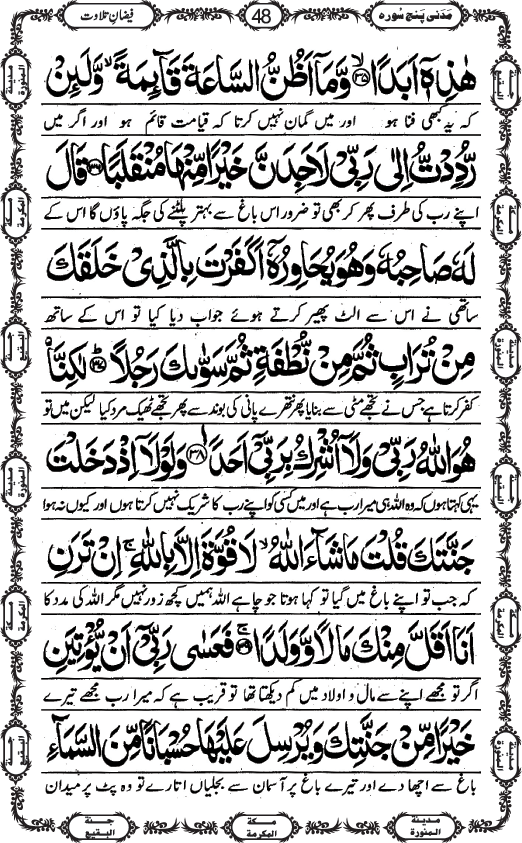 مَدَنی پَنج سُورہ
48
فیضانِ تلاوت
هٰذِهٖۤ اَبَدًاۙ۝۳۵ وَّ مَاۤ اَظُنُّ السَّاعَةَ قَآىٕمَةًۙ وَّ لَىٕنْ
کہ یہ کبھی فنا ہو اور میں گمان نہیں کرتا کہ قیامت قائم ہو اور اگر میں
رُّدِدْتُّ اِلٰى رَبِّیْ لَاَجِدَنَّ خَیْرًا مِّنْهَا مُنْقَلَبًا۝۳۶ قَالَ
اپنے رب کی طرف پھر کر بھی تو ضرور اس باغ سے بہتر پلٹنے کی جگہ پاؤں گا اس کے
لَهٗ صَاحِبُهٗ وَ هُوَ یُحَاوِرُهٗۤ اَكَفَرْتَ بِالَّذِیْ خَلَقَكَ
ساتھی نے اس سے الٹ پھیر کرتے ہوئے جواب دیا کیا تو اس کے ساتھ
مِنْ تُرَابٍ ثُمَّ مِنْ نُّطْفَةٍ ثُمَّ سَوّٰىكَ رَجُلًاؕ۝۳۷ لٰكِنَّاۡ
کفر کرتا ہے جس نے تجھے مٹی سے بنایا پھر نتھرے پانی کی بوند سے پھر تجھے ٹھیک مرد کیا لیکن میں تو
هُوَ اللّٰهُ رَبِّیْ وَ لَاۤ اُشْرِكُ بِرَبِّیْۤ اَحَدًا۝۳۸ وَ لَوْ لَاۤ اِذْ دَخَلْتَ
یہی کہتا ہوں کہ وہ اللہ ہی میرا رب ہے اور میں کسی کو اپنے رب کا شریک نہیں کرتا ہوں اور کیوں نہ ہوا
جَنَّتَكَ قُلْتَ مَا شَآءَ اللّٰهُۙ لَا قُوَّةَ اِلَّا بِاللّٰهِۚ اِنْ تَرَنِ
کہ جب تو اپنے باغ میں گیا تو کہا ہوتا جو چاہے اللہ ہمیں کچھ زور نہیں مگر اللہ کی مدد کا
اَنَا اَقَلَّ مِنْكَ مَالًا وَّ وَلَدًاۚ۝۳۹ فَعَسٰى رَبِّیْۤ اَنْ یُّؤْتِیَنِ
اگر تو مجھے اپنے سے مال و اولاد میں کم دیکھتا تھا تو قریب ہے کہ میرا رب مجھے تیرے
خَیْرًا مِّنْ جَنَّتِكَ وَ یُرْسِلَ عَلَیْهَا حُسْبَانًا مِّنَ السَّمَآءِ
باغ سے اچھا دے اور تیرے باغ پر آسمان سے بجلیاں اتارے تو وہ پٹ پر میدان
جنۃ البقیع
مکۃ المکرمۃ
مدینۃ المنورۃ
جنۃ البقیع
مکۃ المکرمۃ
مدینۃ المنورۃ
مدینۃ المنورۃ
مکۃ المکرمۃ
جنۃ البقیع
مدینۃ المنورۃ
مکۃ المکرمۃ
جنۃ البقیع
جنۃ البقیع
مکۃ المکرمۃ
مدینۃ المنورۃ